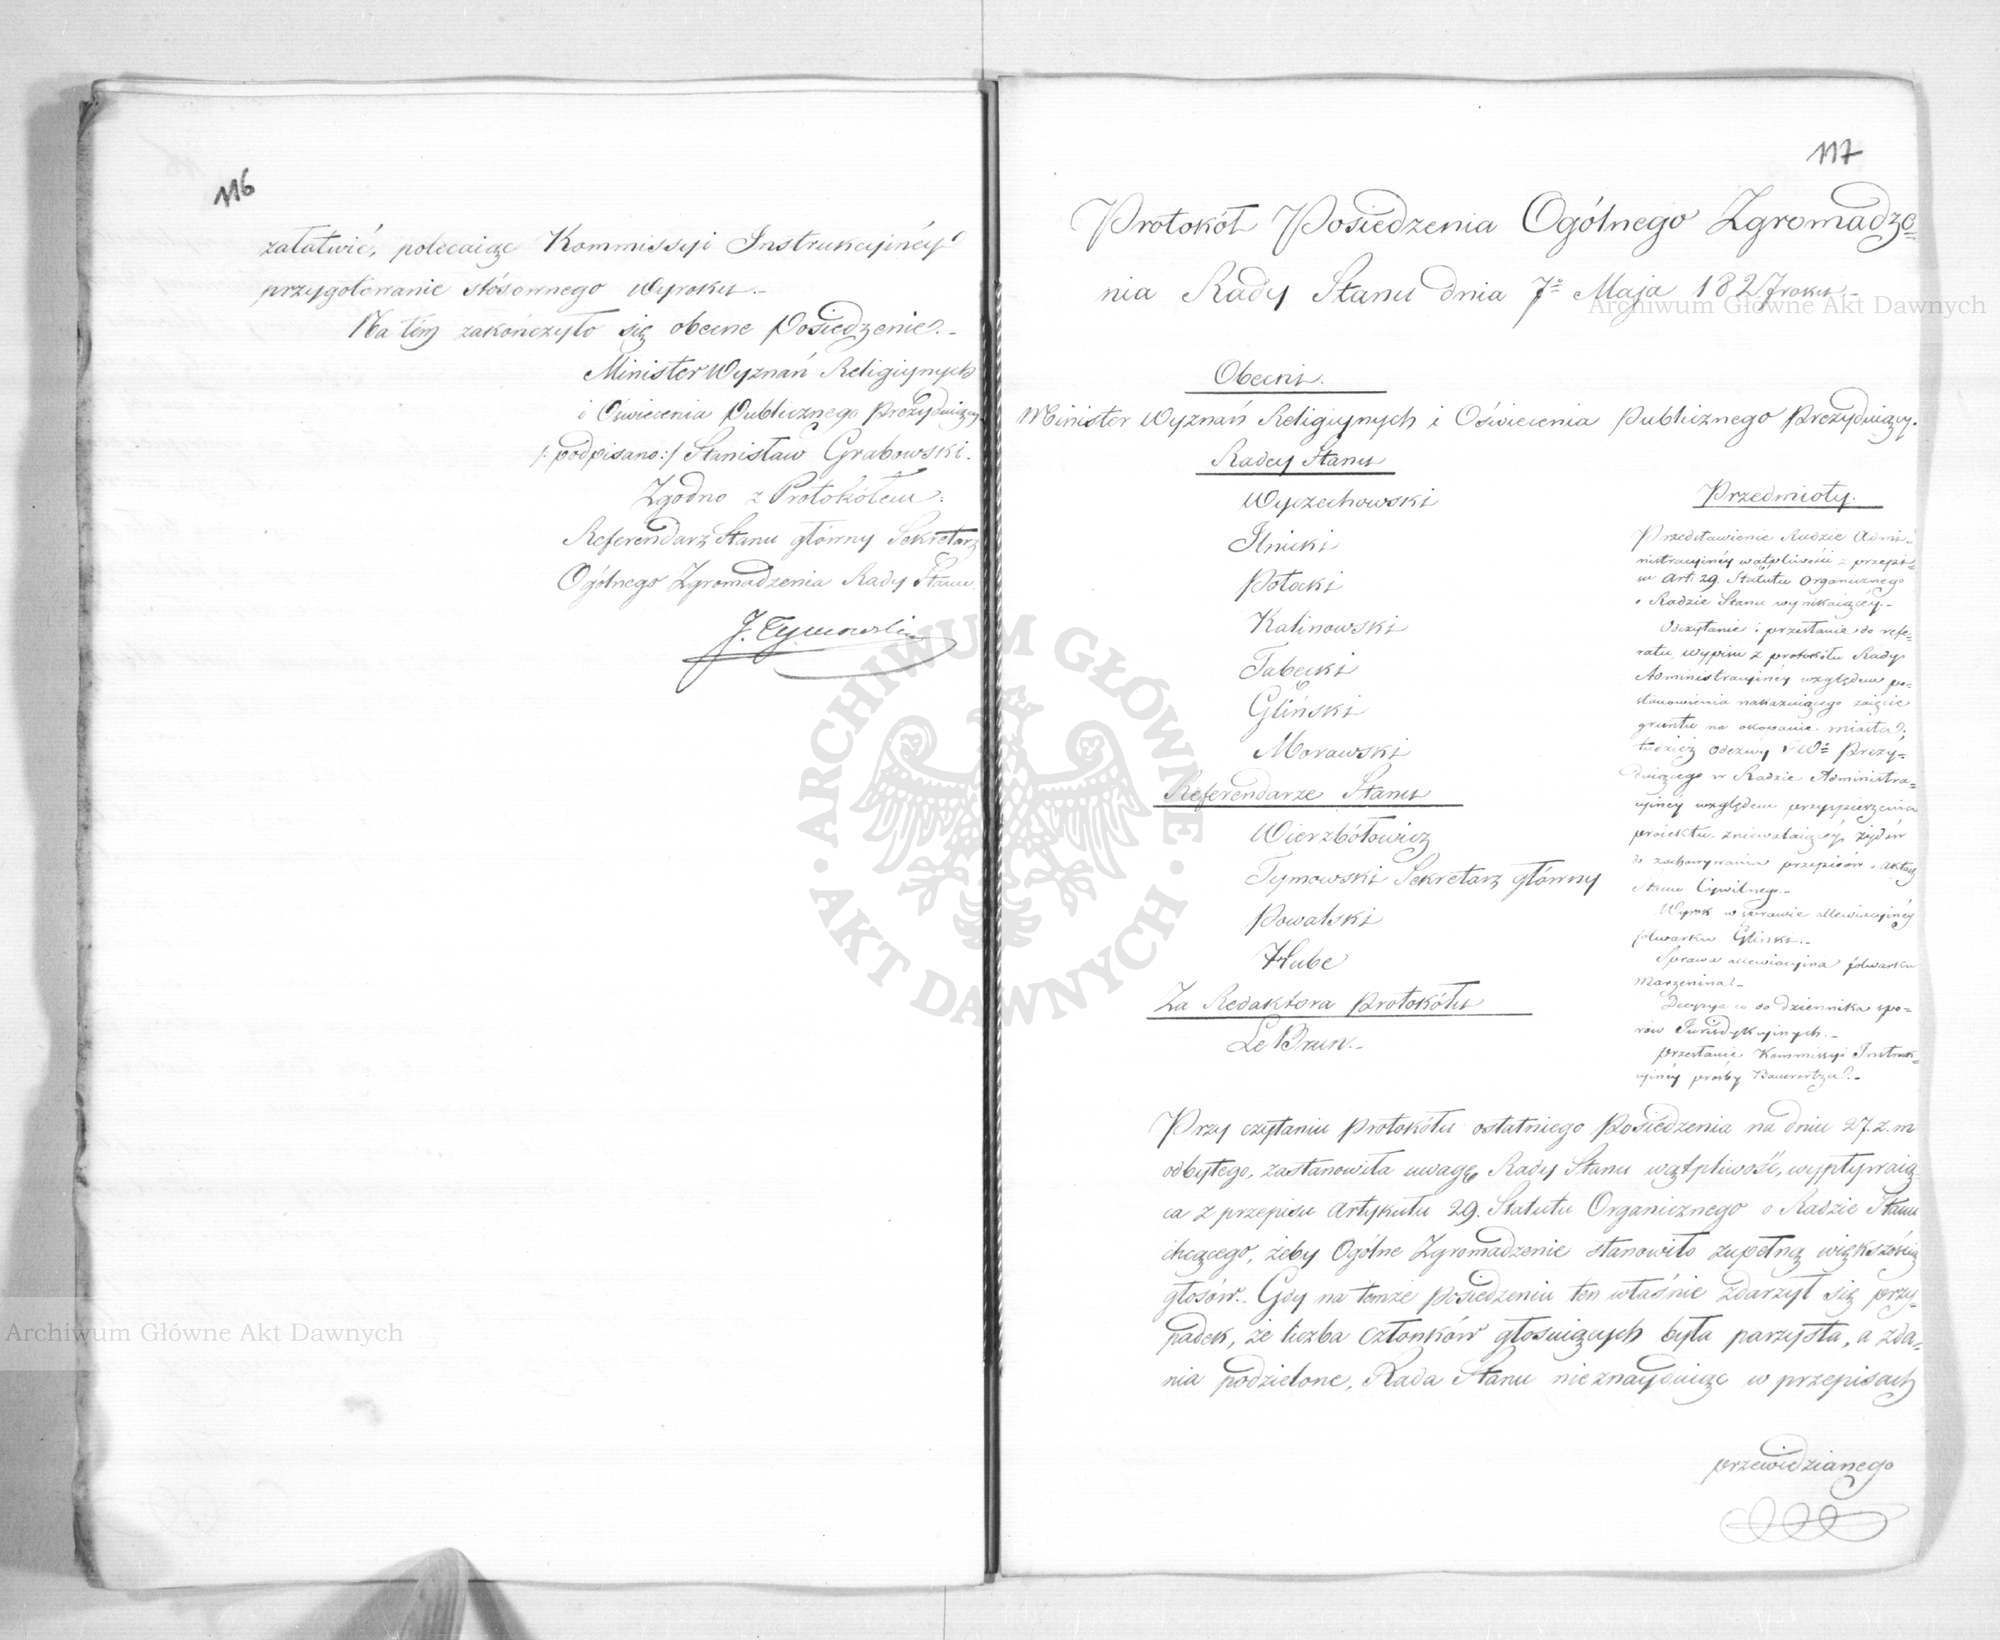 116
załatwić, polecaiąc Kommissyi Instrukcyinéy
przygotowanie stósownego Wyroku.
Na tém zakończyło się obecne Posiedzenie.
Minister Wyznań Religiynych
i Oświecenia Publicznego Prezyduiący.
/:podpisano:/ Stanisław Grabowski.
Zgodno z Protokółem:
Referendarz Stanu główny Sekretarz
Ogólnego Zgromadzenia Rady Stanu
J. Tymowski
117
Protokół Posiedzenia Ogólnego Zgromadze=
nia Rady Stanu dnia 7º Maja 1827 roku
Obecni.
Minister Wyznań Religiynych i Oświecenia Publicznego Prezyduiący.
Radcy Stanu
Wyczechowski
Ilnicki
Potocki
Kalinowski
Tabęcki
Gliński
Morawski
Referendarze Stanu
Wierzbółowicz
Tymowski Sekretarz główny
Powalski
Hube
Za Redaktora Protokółu
Le Brun.
Przedmioty.
Przedstawienie Radzie Admi=
nistracyinéy wątpliwości z przepi=
su Art: 29. Statutu Organicznego
o Radzie Stanu wynikaiącéy.
Odczytanie i przesłanie do refe=
ratu, wypisu z protokółu Rady
Administracyinéy względem po=
stanowienia nakazuiącego zaięcie
gruntu na okopanie miasta;
tudzież odezwy Prezy=
duiącego w Radzie Administra=
cyinéy względem przyspieszenia
proiektu zniewalaiącego żydów
do zachowywania przepisów o aktach
Stanu Cywilnego.
Wyrok w sprawie allewiacyinéy
folwarku Gliński.
Sprawa allewiacyina folwarku
Marzenina.
Decyzya co do dziennika spo=
rów Jurisdykcyinych.
Przesłanie Kommissyi Instruk=
cyinéy prośby
Przy czytaniu Protokółu ostatniego Posiedzenia na dniu 27. z. m
odbytego, zastanowiła uwagę Rady Stanu wątpliwość, wypływaią=
ca z przepisu Artykułu 29. Statutu Organicznego o Radzie Stanu
chcącego, żeby Ogólne Zgromadzenie stanowiło zupełną większością
głosów. Gdy na temże Posiedzeniu ten właśnie zdarzył się przy=
padek, że liczba Członków głosuiących była parzysta, a zda=
nia podzielone, Rada Stanu nieznayduiąc w przepisach
przewidzianego
Archiwum Główne Akt Dawnych
Archiwum Główne Akt Dawnych
ARCHIWUM GŁÓWNE · AKT DAWNYCH ·